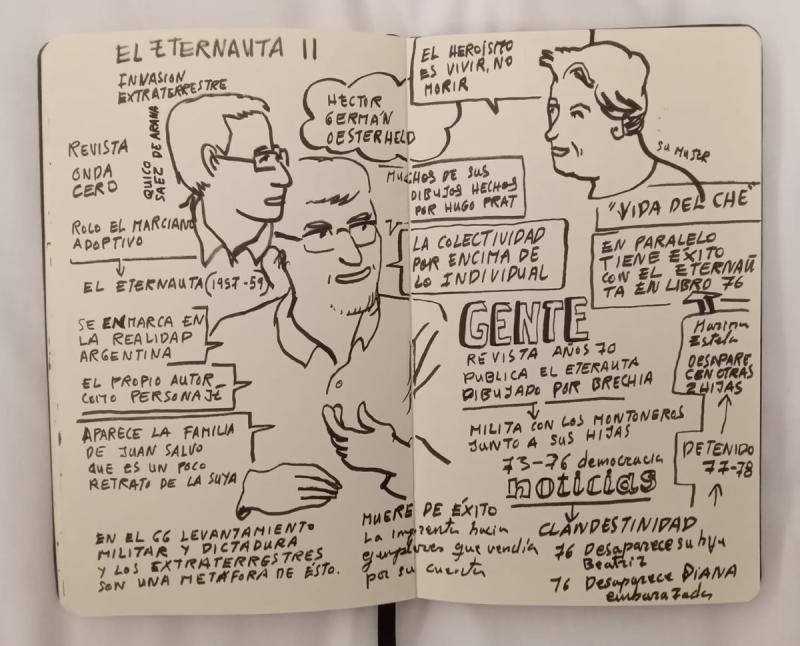 EL ETERNAUTA II
INVASION
EXTRATERRESTRE
REVISTA
ONDA
CERO
QUICO
SAEZ DE ARANA
ROLO EL MARCIANO
ADOPTIVO
EL ETERNAUTA (1957-59)
SE ENMARCA EN
LA REALIDAD
ARGENTINA
EL PROPIO AUTOR
COMO PERSONAJE
APARECE LA FAMILIA
DE JUAN SALVO
QUE ES UN POCO
RETRATO DE LA SUYA
EN EL 66 LEVANTAMIENTO
MILITAR Y DICTADURA
Y LOS EXTRATERRESTRES
SON UNA METÁFORA DE ÉSTO.
HECTOR
GERMÁN
OESTERHELD
MUCHOS DE SUS
DIBUJOS HECHOS
POR HUGO PRAT
LA COLECTIVIDAD
POR ENCIMA DE
LO INDIVIDUAL
EL HEROÍSMO
ES VIVIR, NO
MORIR
SU MUJER
"VIDA DEL CHE"
EN PARALELO
TIENE ÉXITO
CON EL ETERNAU
TA EN LIBRO 76
GENTE
REVISTA AÑOS 70
PUBLICA EL ETERAUTA
DIBUJADO POR BRECHIA
MILITA CON LOS MONTONEROS
JUNTO A SUS HIJAS
73-76 democracia
noticias
CLANDESTINIDAD
76 Desaparece su hija
Beatriz
76 Desaparece DIANA
embarazada
DETENIDO
77-78
Marina
Estela
DESAPARE
CEN OTRAS
2 HIJAS
MUERE DE ÉXITO
La imprenta hacía
ejemplares que vendía
por su cuenta